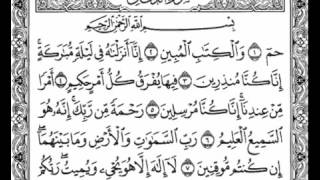 بِسْمِ اللَّهِ الرَّحْمَٰنِ الرَّحِيمِ
حمٓ ١ وَالْكِتَابِ الْمُبِينِ ٢ إِنَّا أَنزَلْنَاهُ فِي لَيْلَةٍ مُّبَارَكَةٍ
إِنَّا كُنَّا مُنذِرِينَ ٣ فِيهَا يُفْرَقُ كُلُّ أَمْرٍ حَكِيمٍ ٤ أَمْرًا
مِّنْ عِندِنَا إِنَّا كُنَّا مُرْسِلِينَ ٥ رَحْمَةً مِّن رَّبِّكَ إِنَّهُ هُوَ
السَّمِيعُ الْعَلِيمُ ٦ رَبِّ السَّمَٰوَٰتِ وَالْأَرْضِ وَمَا بَيْنَهُمَا
إِن كُنتُم مُّوقِنِينَ ٧ لَا إِلَٰهَ إِلَّا هُوَ يُحْيِي وَيُمِيتُ رَبُّكُمْ